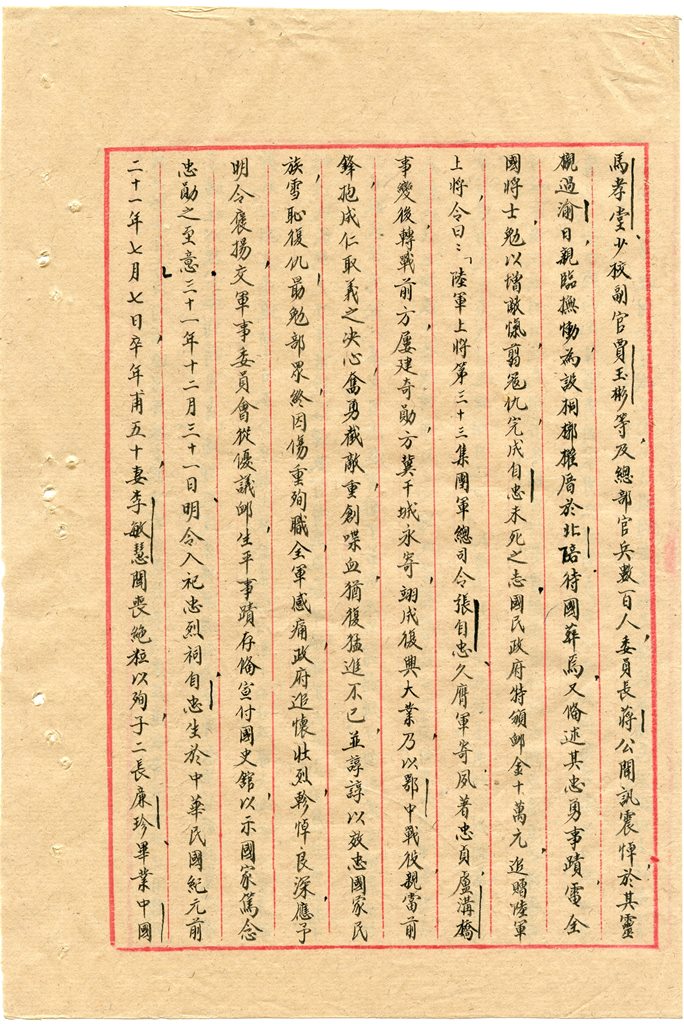 馬孝堂、少校副官賈玉彬等、及總部官兵數百人、委員長蔣公聞訊震悼、於其靈
櫬過渝日、親臨撫慟、為設桐槨、權厝於北碚、待國葬焉、又備述其忠勇事蹟、電全
國將士、勉以增敵愾、翦寇仇、完成自忠未死之志、國民政府特頒卹金十萬元、追贈陸軍
上將、令曰:「陸軍上將第三十三集團軍總司令張自忠、久膺軍寄、夙著忠貞、盧溝橋
事變後、轉戰前方、屢建奇勛、方冀干城永寄、翊成復興大業、乃以鄂中戰役、親當前
鋒、抱成仁取義之決心、奮勇截敵、重創喋血、猶復猛進不已、並諄諄以效忠國家民
族、雪恥復仇、最勉部眾、終因傷重殉職、全軍感痛、政府追懷壯烈、軫悼良深、應予
明令褒揚、交軍事委員會從優議卹、生平事蹟、存備宣付國史館、以示國家篤念
忠勛之至意、三十一年十二月三十一日、明令入祀忠烈祠、自忠生於中華民國紀元前
二十一年七月七日、卒年甫五十、妻李敏慧聞喪絕粒以殉、子二、長廉珍、畢業中國